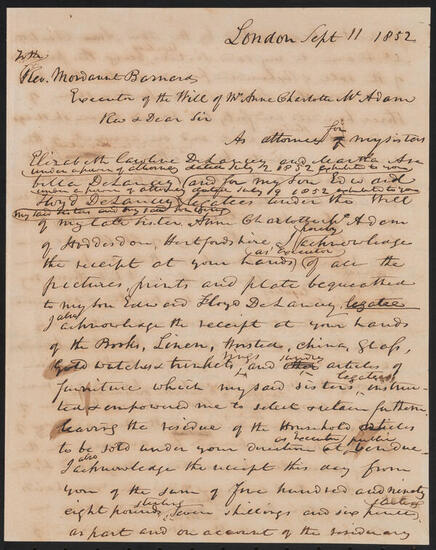 London Sept 11 1852
To the
Rev. Mordaunt Barnard
Executor of the Will of Mrs Anne Charlotte Mc Adam
Rev & Dear Sir
As attorney for my sisters
Elizabeth Caroline DeLancey and Martha Ara
under a power of attorney dated July 2 1852 exhibited to you
bella DeLancey (and for my son Edward
under a power of attorney dated July 19 1852 exhibited to you
Floyd DeLancey) legatees under the Will
my said sisters and my said son being
of my late sister Anne Charlotte Mc Adam
of Hoddesdon, Hertfordshire, I hereby acknowledge
the receipt at your hands as executor of all the
pictures, prints and plate bequeathed
to my son Edward Floyd DeLancey, legatee
I also acknowledge the receipt at your hands
of the Books, Linen, Worsted, China, Glass,
Gold watches & trinkets, and sundry articles of
furniture which my said sisters legatees instruc-
ted & empowered me to select & retain for them
leaving the residue of the Household articles
to be sold under your direction as executor at public vendue.
I also acknowledge the receipt this day from
you of the sum of Five hundred and ninety
eight pounds sterling, seven shillings and six pence
as part and on account of the residuary